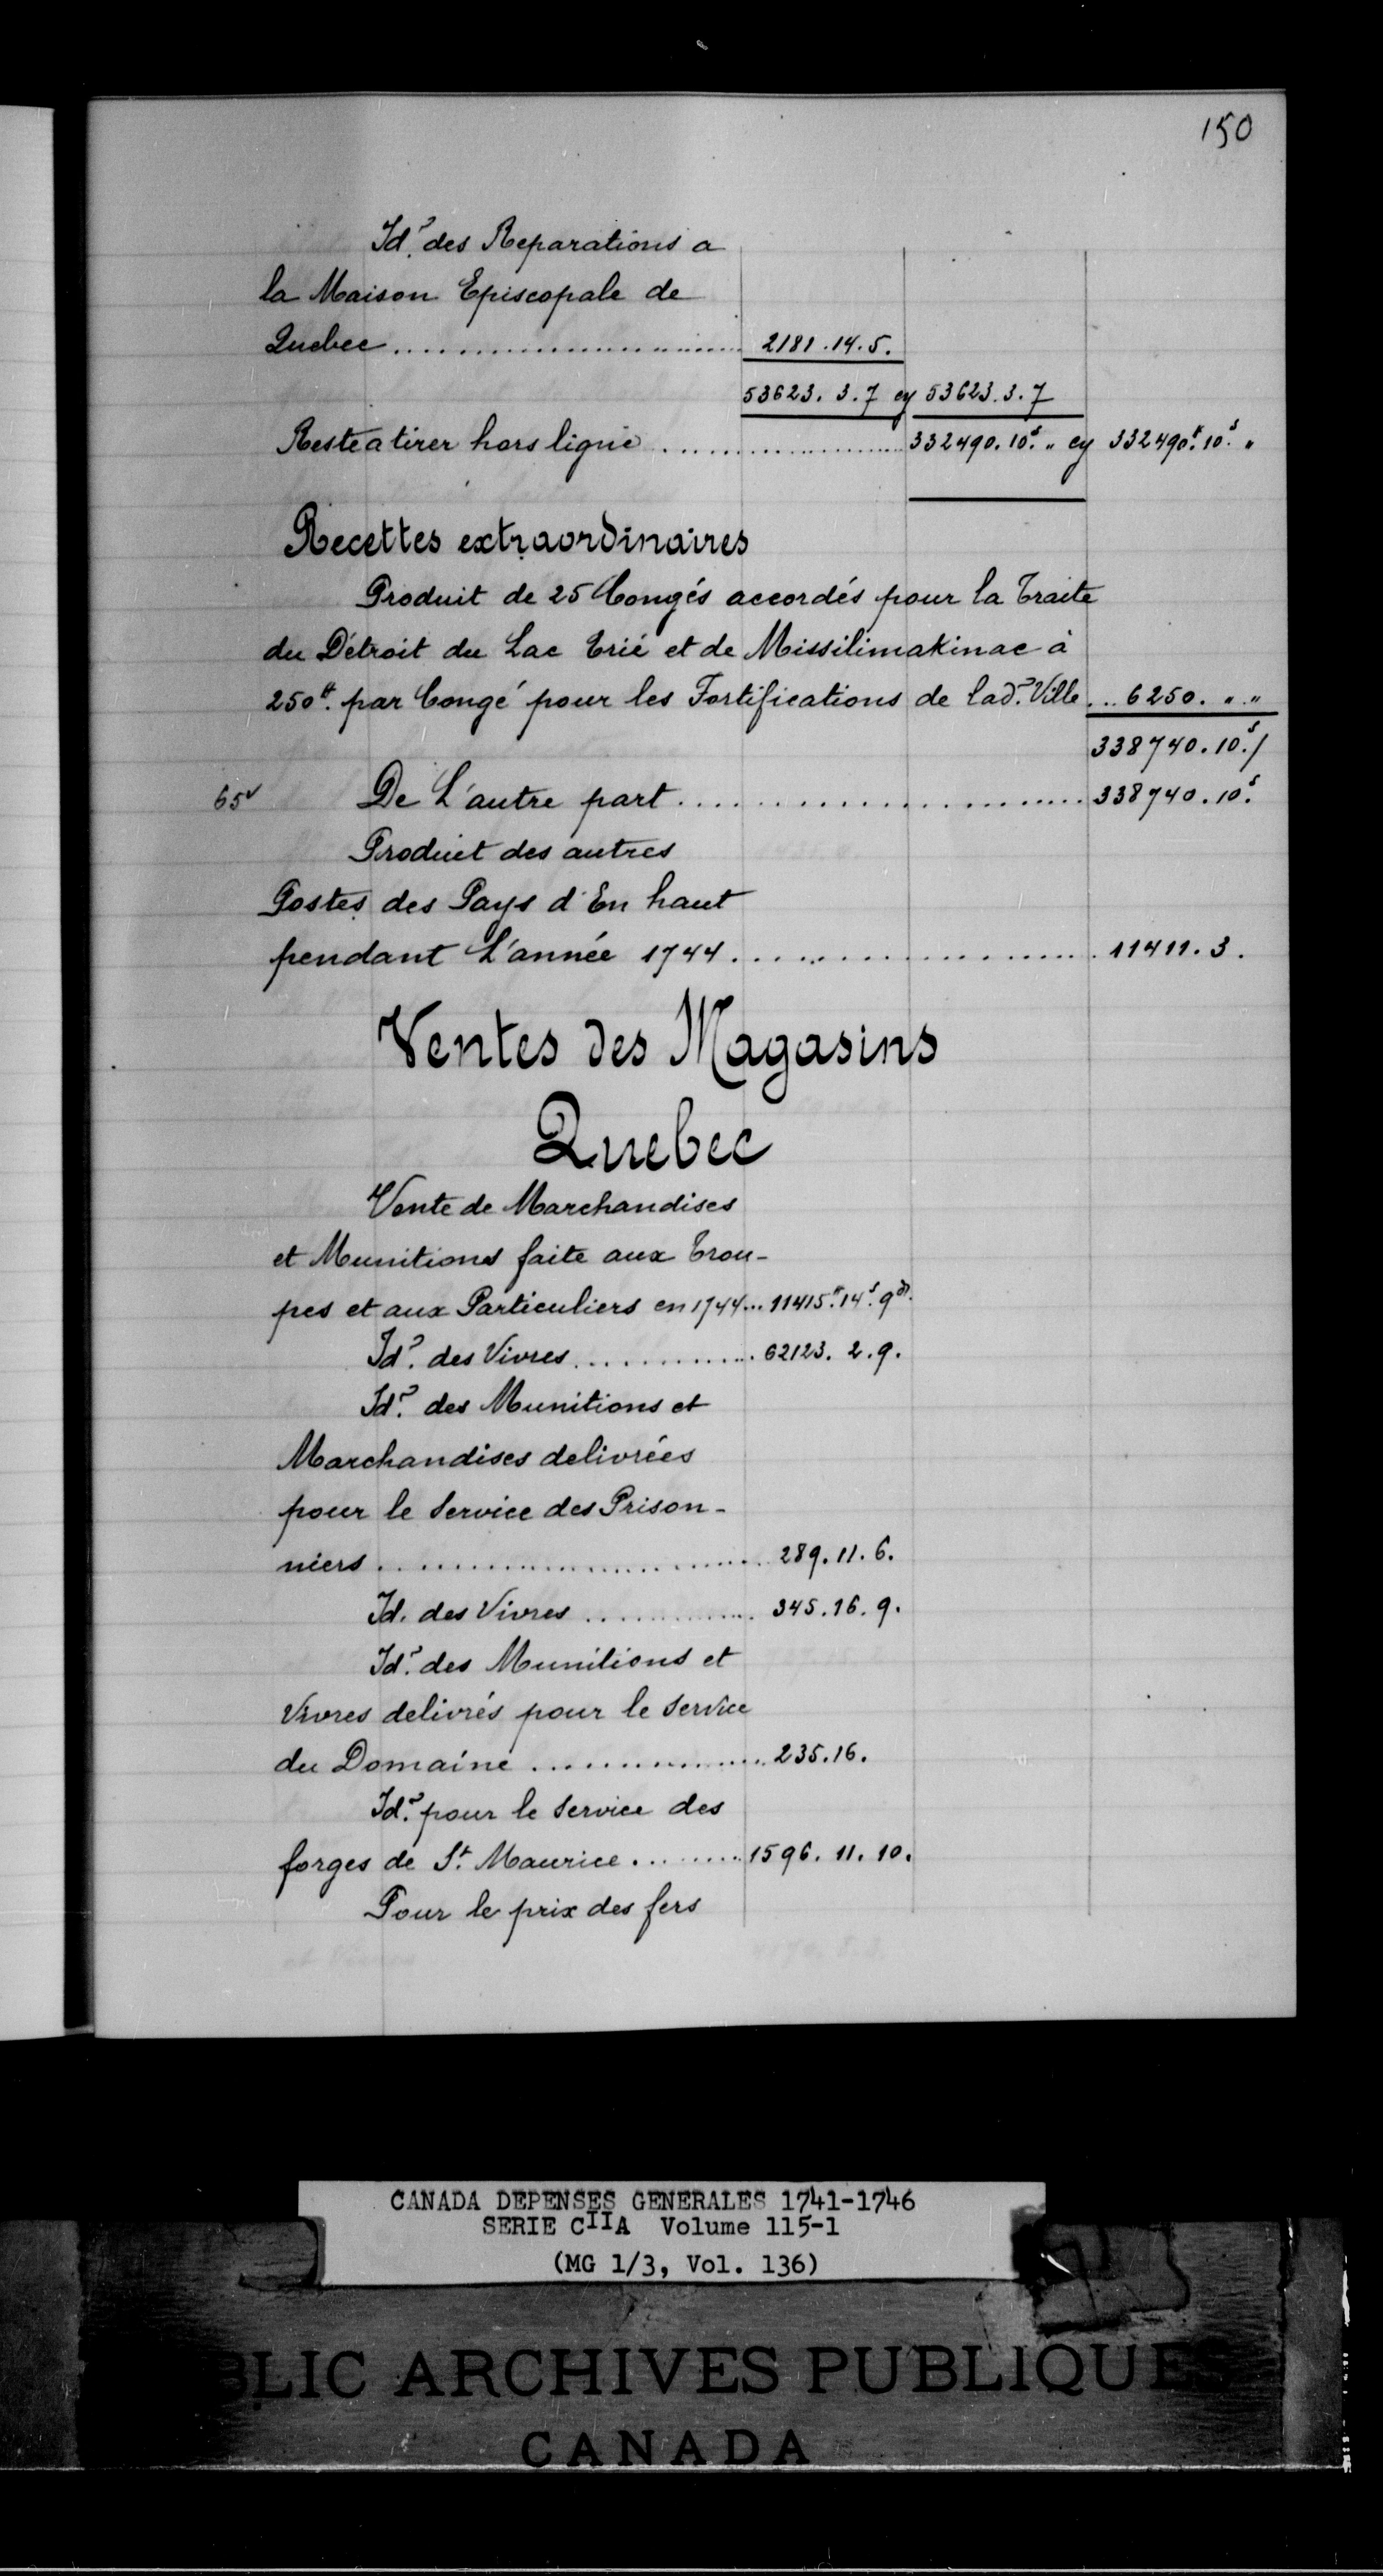 150
Id? des Reparations a
la Maison Episcopale de
Quebec ........................... 2181.14.5.
53623. 3.7 cy 53623.3.7
Reste a tirer hors ligne ................ 332490.10s. " cy 332490tt.10s. "
Recettes extraordinaires
Produit de 25 Congés accordés pour la Traite
du Détroit du Lac Erié et de Missilimakinac à
250tt. par Congé pour les Fortifications de lad? Ville ... 6250. " "
338740.10s./
65v De L'autre part ........................ 338740.10s.
Produit des autres
Postes des Pays d'En haut
pendant L'année 1744 ........................ 11411.3.
Ventes des Magasins
Quebec
Vente de Marchandises
et Munitions faite aux Trou-
pes et aux Particuliers en 1744 ... 11415tt.14s.9d.
Id? des Vivres ............. 62123. 2.9.
Id? des Munitions et
Marchandises delivrées
pour le Service des Prison-
niers ........................ 289.11.6.
Id. des Vivres ............. 345.16.9.
Id? des Munitions et
Vivres delivrés pour le Service
du Domaine ................ 235.16.
Id? pour le Service des
forges de St. Maurice ........ 1596.11.10.
Pour le prix des fers
CANADA DEPENSES GENERALES 1741-1746
SERIE CIIA Volume 115-1
(MG 1/3, Vol. 136)
BLIC ARCHIVES PUBLIQUE
CANADA